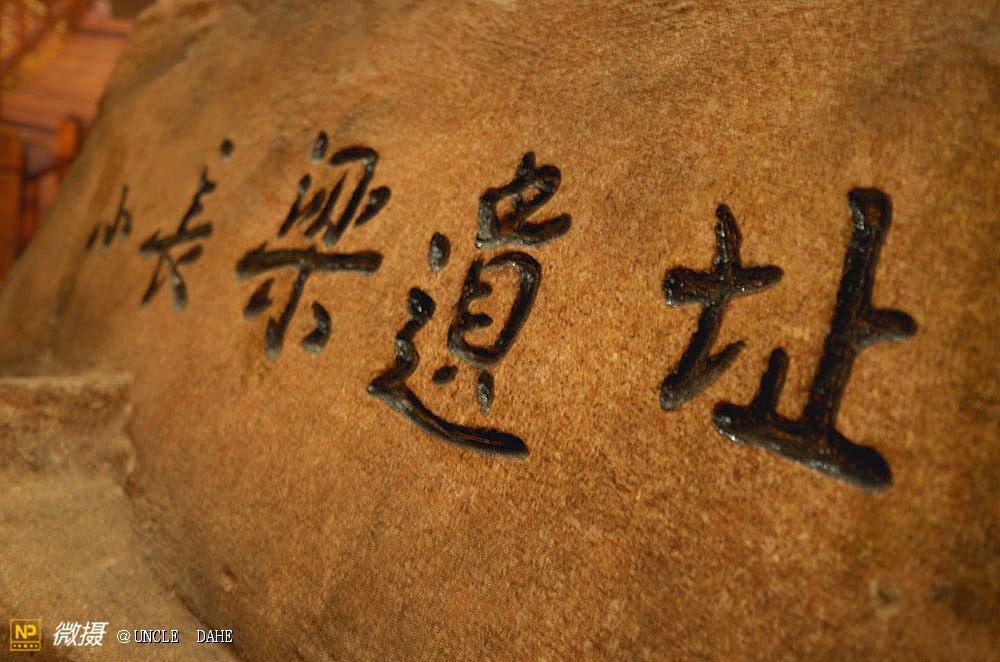 小长梁遗址
NP 微摄 @UNCLE DAHE